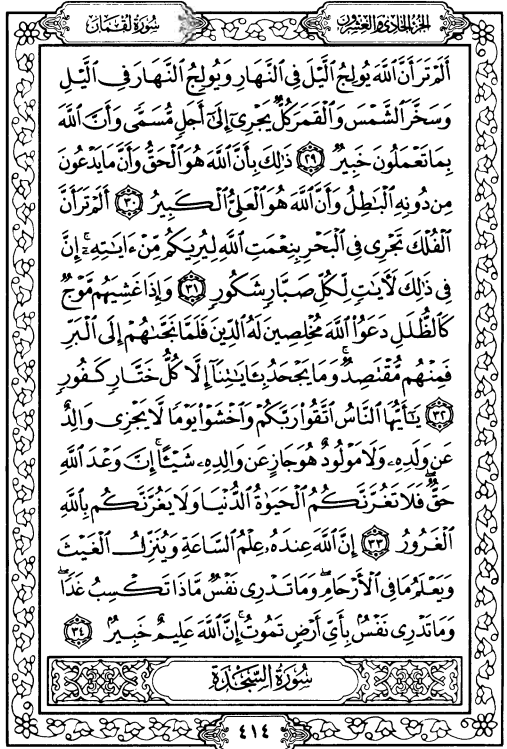 سُورَةُ لُقۡمَانَ
الجُزءُ الحَادِي وَالعِشرُونَ
أَلَمۡ تَرَ أَنَّ ٱللَّهَ يُولِجُ ٱلَّيۡلَ فِي ٱلنَّهَارِ وَيُولِجُ ٱلنَّهَارَ فِي ٱلَّيۡلِ
وَسَخَّرَ ٱلشَّمۡسَ وَٱلۡقَمَرَ كُلّٞ يَجۡرِيٓ إِلَىٰٓ أَجَلٖ مُّسَمّٗى وَأَنَّ ٱللَّهَ
بِمَا تَعۡمَلُونَ خَبِيرٞ ٢٩ ذَٰلِكَ بِأَنَّ ٱللَّهَ هُوَ ٱلۡحَقُّ وَأَنَّ مَا يَدۡعُونَ
مِن دُونِهِ ٱلۡبَٰطِلُ وَأَنَّ ٱللَّهَ هُوَ ٱلۡعَلِيُّ ٱلۡكَبِيرُ ٣٠ أَلَمۡ تَرَ أَنَّ
ٱلۡفُلۡكَ تَجۡرِي فِي ٱلۡبَحۡرِ بِنِعۡمَتِ ٱللَّهِ لِيُرِيَكُم مِّنۡ ءَايَٰتِهِۦٓۚ إِنَّ
فِي ذَٰلِكَ لَأٓيَٰتٖ لِّكُلِّ صَبَّارٖ شَكُورٖ ٣١ وَإِذَا غَشِيَهُم مَّوۡجٞ
كَٱلظُّلَلِ دَعَوُاْ ٱللَّهَ مُخۡلِصِينَ لَهُ ٱلدِّينَ فَلَمَّا نَجَّىٰهُمۡ إِلَى ٱلۡبَرِّ
فَمِنۡهُم مُّقۡتَصِدٞۚ وَمَا يَجۡحَدُ بِـَٔايَٰتِنَآ إِلَّا كُلُّ خَتَّارٖ كَفُورٖ
٣٢ يَٰٓأَيُّهَا ٱلنَّاسُ ٱتَّقُواْ رَبَّكُمۡ وَٱخۡشَوۡاْ يَوۡمٗا لَّا يَجۡزِي وَالِدٌ
عَن وَلَدِهِۦ وَلَا مَوۡلُودٌ هُوَ جَازٍ عَن وَالِدِهِۦ شَيۡـًٔاۚ إِنَّ وَعۡدَ ٱللَّهِ
حَقّٞۖ فَلَا تَغُرَّنَّكُمُ ٱلۡحَيَوٰةُ ٱلدُّنۡيَا وَلَا يَغُرَّنَّكُم بِٱللَّهِ
ٱلۡغَرُورُ ٣٣ إِنَّ ٱللَّهَ عِندَهُۥ عِلۡمُ ٱلسَّاعَةِ وَيُنَزِّلُ ٱلۡغَيۡثَ
وَيَعۡلَمُ مَا فِي ٱلۡأَرۡحَامِۖ وَمَا تَدۡرِي نَفۡسٞ مَّاذَا تَكۡسِبُ غَدٗاۖ
وَمَا تَدۡرِي نَفۡسُۢ بِأَيِّ أَرۡضٖ تَمُوتُۚ إِنَّ ٱللَّهَ عَلِيمٌ خَبِيرُۢ ٣٤
سُورَةُ السَّجۡدَةِ
٤١٤